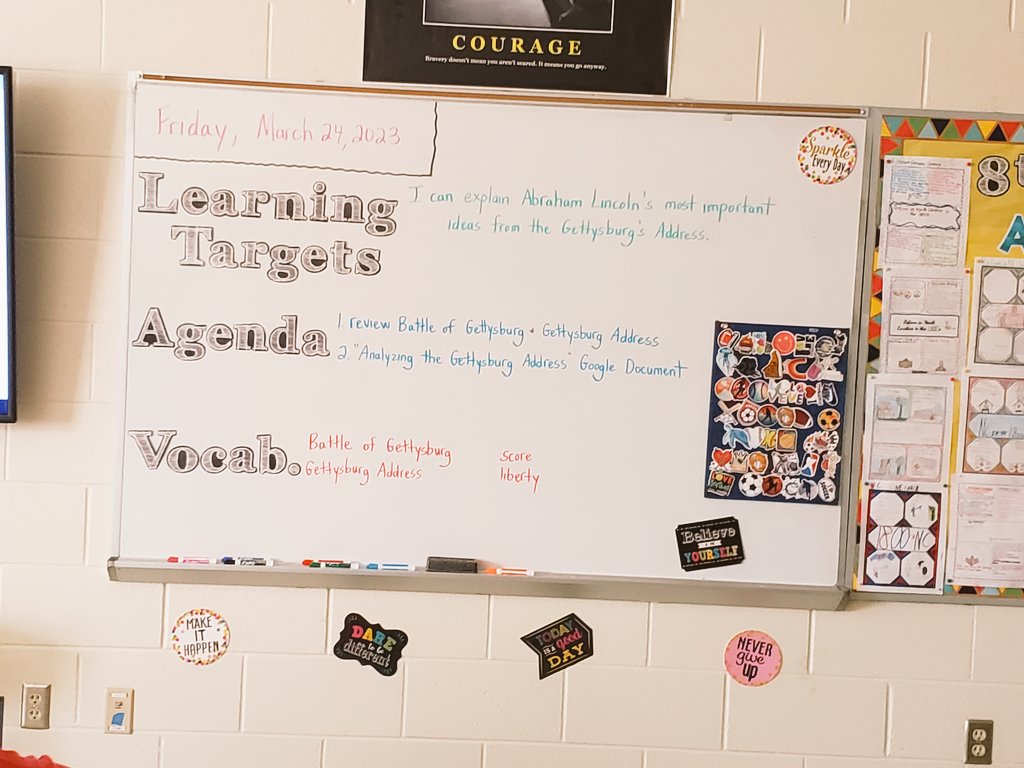 COURAGE
Bravery doesn't mean you aren't scared. It means you go anyway.
Friday, March 24, 2023
Sparkle
Every Day
Learning
Targets
I can explain Abraham Lincoln's most important
ideas from the Gettysburg's Address.
Agenda
1. review Battle of Gettysburg + Gettysburg Address
2. "Analyzing the Gettysburg Address" Google Document
Vocab.
Battle of Gettysburg
Gettysburg Address
score
liberty
Believe
in
YOURSELF
MAKE
IT
HAPPEN
DARE
to be
different
TODAY
IS A good
DAY
NEVER
give
UP
8t
A